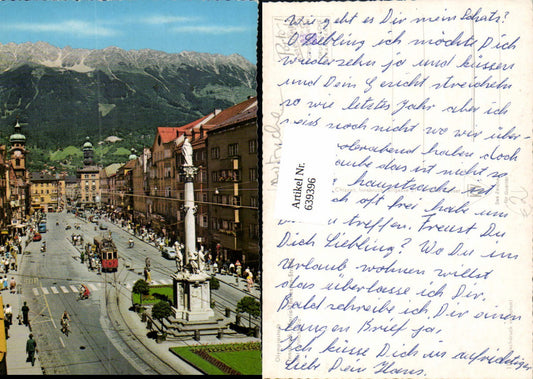 Wie geht es Dir mein Schatz?
O Liebling ich möchte Dich
wiedersehen ja und küssen
und Dein Gesicht streicheln
so wie letztes Jahr aber ich
weiss noch nicht wo wir über-
haben, doch
glaube das ist nicht so
hauptsache ist
ich oft frei habe um
zu treffen. Freust Du
Dich Liebling? Wo Du im
Urlaub wohnen willst
das überlasse ich Dir.
Bald schreibe ich Dir einen
langen Brief ja,
Ich küsse Dich in aufrichtiger
Liebe Dein Hans.
Artikel Nr.
639396